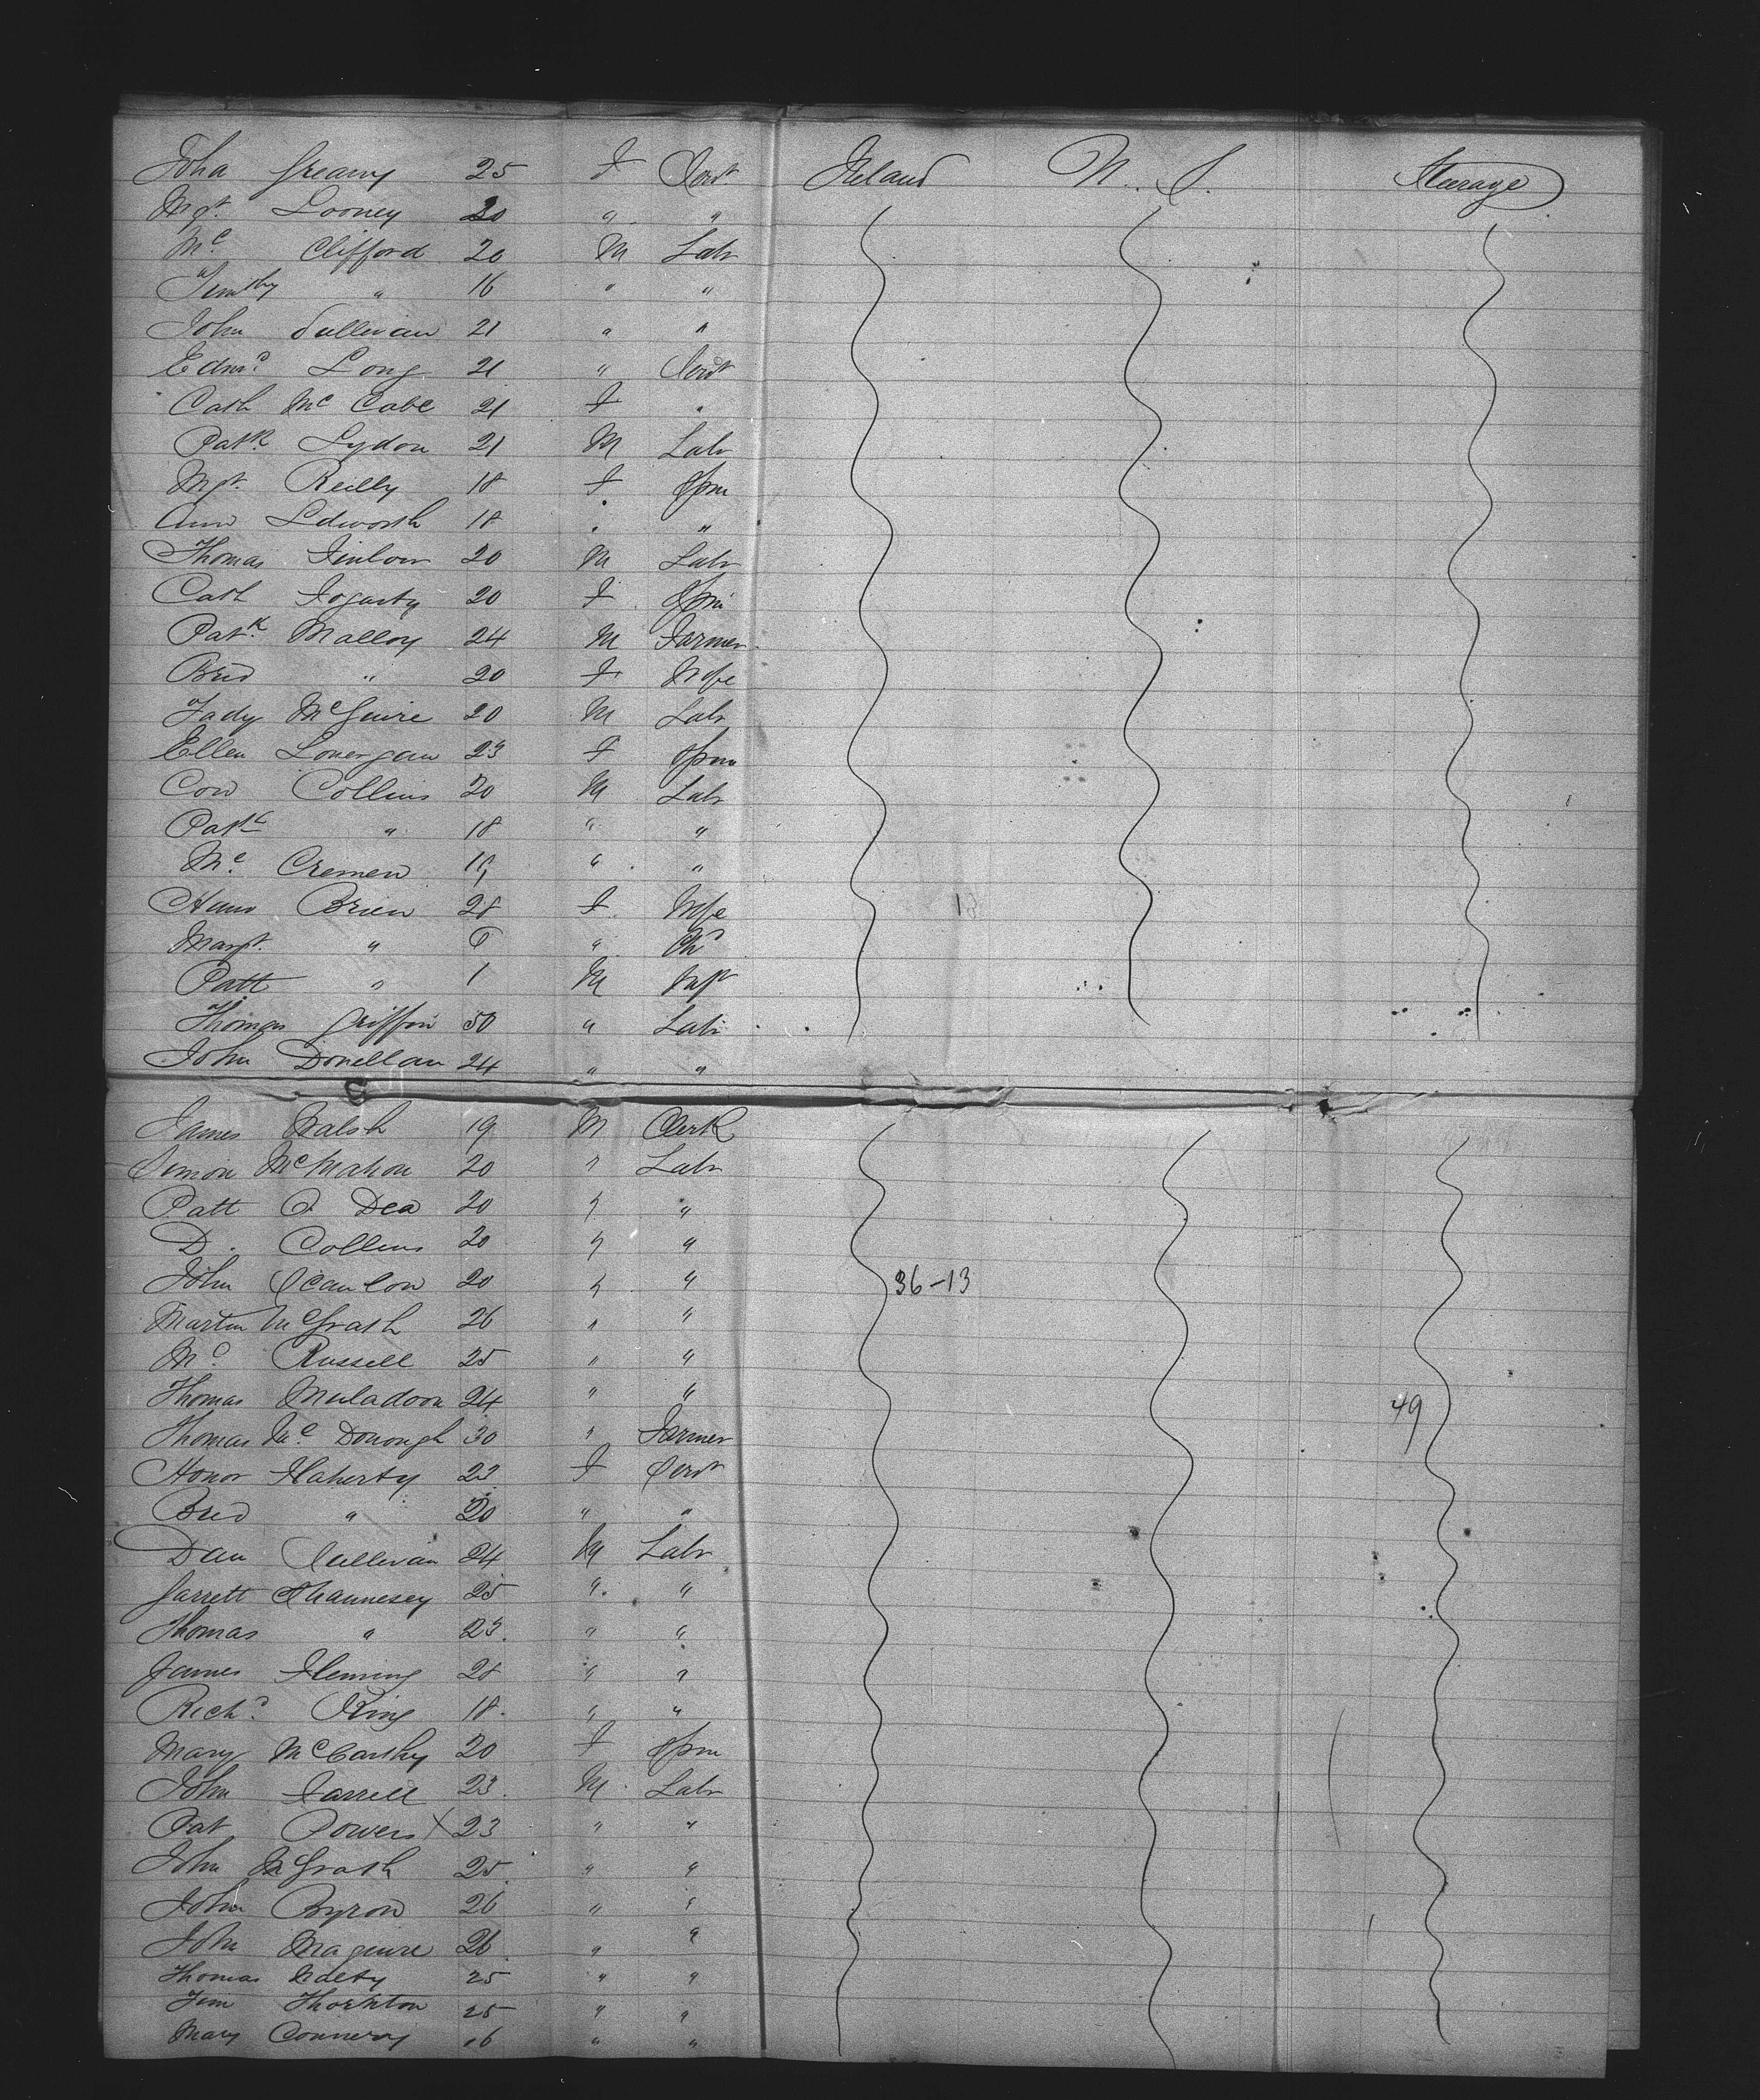 Joha Greany 25 F Servt Ireland U. S. Steerage
Mgt. Looney 20 " "
Mc. Clifford 20 M Labr
Timthy " 16 " "
John Sullivan 21 " "
Edmd. Long 21 " Servt
Cath McCabe 21 F "
Patk. Lydon 21 M Labr
Mgt. Reilly 18 F Spin
Ann Ldworth 18 " "
Thomas 20 M Labr
Cath Fogarty 20 F Spin
Patk. Malloy 24 M Farmer
Brid " 20 F Wife
Tady McGuire 20 M Labr
Ellen Lonergan 23 F Spin
Con Collins 20 M Labr
Patk " 18 " "
Mc. Cremen " "
Hano Brien 28 F Wife
Margt. " " Chd
Patt " 1 M Inft
Thomas Griffin 50 " Labr
John Donellan 24 " "
James Walsh 19 M Clerk
Simon McMahon 20 " Labr
Patt O Dea 20 " "
D. Collins 20 " "
John Scanlon 20 " " 36-13
Martin McGrath 26 " "
Mc. Russell 25 " "
Thomas Muladoon 24 " " 49
Thomas Mc. Donough 30 " Farmer
Honor Flaherty 23 F Servt
Brid " 20 " "
Dan Sullivan 24 M Labr
Garrett Shannesey 25 " "
Thomas " 23 " "
James Fleming 28 " "
Richd. King 18 " "
Mary McCarthy 20 F Spin
John Farrell 23 M Labr
Pat Powers X 23 " "
John McGrath 25 " "
John Byron 26 " "
John Maguire 26 " "
Thomas Nalty 25 " "
Jim Thornton 25 " "
Mary Connery 16 " "